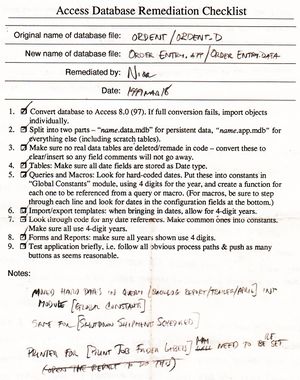 Access Database Remediation Checklist
Original name of database file: ORDENT / ORDENT_D
New name of database file: ORDER ENTRY.APP / ORDER ENTRY.DATA
Remediated by:
Date: 1999
1. Convert database to Access 8.0 (97). If full conversion fails, import objects
individually.
2. Split into two parts – “name.data.mdb” for persistent data, “name.app.mdb” for
everything else (including scratch tables).
3. Make sure no real data tables are deleted/remade in code – convert these to
clear/insert so any field comments will not go away.
4. Tables: Make sure all date fields are stored as Date type.
5. Queries and Macros: Look for hard-coded dates. Put these into constants in
“Global Constants” module, using 4 digits for the year, and create a function for
each one to be referenced from a query or macro. (For macros, be sure to step
through each line and look for dates in the configuration fields at the bottom.)
6. Import/export templates: when bringing in dates, allow for 4-digit years.
7. Look through code for any date references. Make common ones into constants.
Make sure all use 4-digit years.
8. Forms and Reports: make sure all years shown use 4 digits.
9. Test application briefly, i.e. follow all obvious process paths & push as many
buttons as seems reasonable.
Notes:
MOVED HARD DATES IN QUERY [BACKLOG REPORT/ ] INTO
MODULE [GLOBAL CONSTANTS]
SAME FOR [SHUTDOWN SHIPMENT SCHEDULED]
PRINTER FOR [PRINT JOB FOLDER LABELS] MAY NEED TO BE SET
(OPEN THE REPORT TO DO THIS)